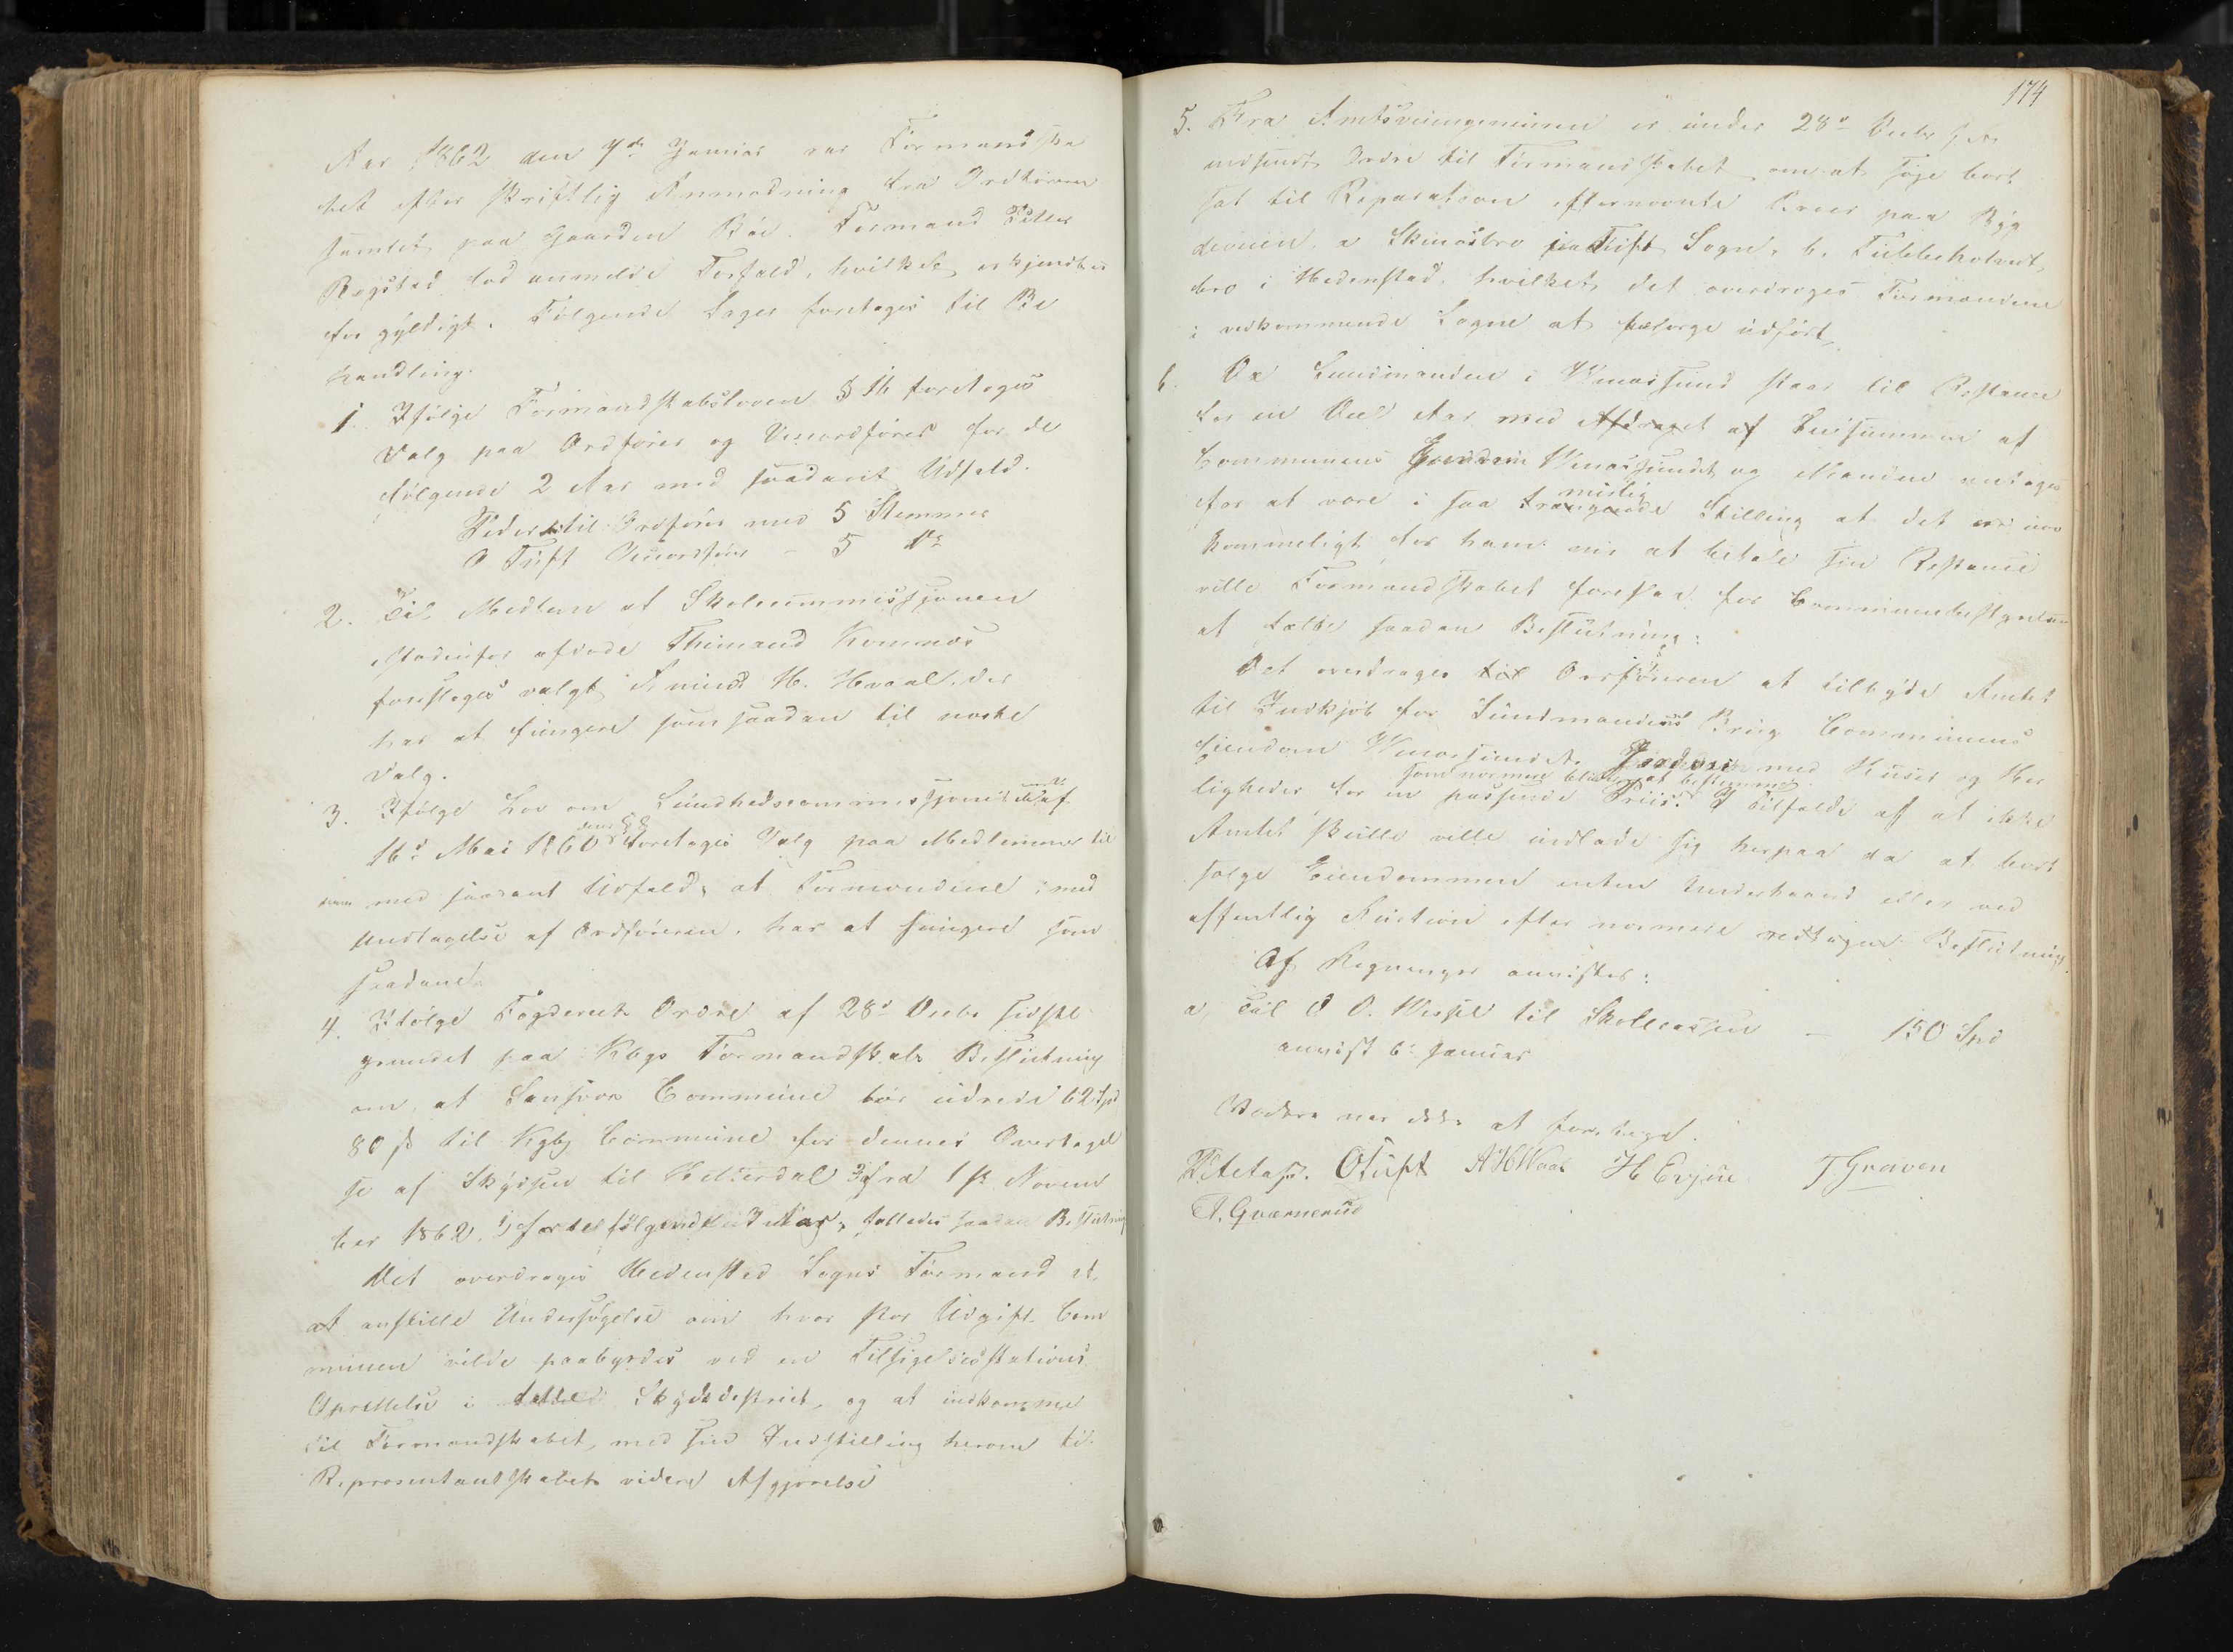 Aar 1862 den 7de Januar var Formandska
bet efter skriftlig Anmodning fra Ordføreren
samlet paa Gaarden Bøe. Formand Petter
Røgstad lod anmelde Forfald, hvilket erkjendtes
for gyldigt. Følgende Sager foretoges til Be
handling.
1. Ifølge Formandskabsloven § 16 foretoges
Valg paa Ordfører og Viceordfører for de
følgende 2 Aar med saadant Udfald.
til Ordfører med 5 Stemmer
O Tuft Viceordfører - 5 Do
2. Til Medlem af Skolecommissjonen
istedenfor afdøde Komnæs
foresloges valgt H. Hvaal, der
har at fungere som saadan til næste
Valg.
3. Ifølge Lov om Sundhedscommissjoner af
16de Mai 1860 foretoges Valg paa Medlemmer til
med saadant Udfald, at Formændene med
Undtagelse af Ordføreren, har at fungere som
saadanne
4. Ifølge Fogderiets Ordre af 28de Decbr sidstl
grundet paa Kbgs Formandskabs Beslutning
om, at Sandsvær Commune bør udrede 62 Spd
80 s til Kgbg Commune for dennes Overtagel
se af Skydsen til Hitterdal fra 1ste Novem
ber 1862, følgende Aar, fattedes saadan Beslutning
Det overdroges Hedenstad Sogns Formænd at
at anstille Undersøgelse om hvor stor Udgift Com
munen vilde paabyrdes ved en Tilsigelsesstations
Oprettelse i Skydsdistrict, og at indkomme
til Formandskabet, med sin Indstilling herom til
Representantskabets videre Afgjørelse
174
5. Fra Amtsveiingeniøren er under 28de Decbr f. A.
indsendt Ordre til Formandskabet om at søge bort
sat til Reparation efternævnte Broer paa Byg
deveien, a Skinæsbro i Tuft Sogn, b,
bro i Hedenstad, hvilket det overdroges Formændene
i vedkommende Sogne at besørge udført,
6. Da Sundmanden i Winorsund staar til Restance
for en Deel Aar med Afdraget af Leiesummen af
Communens Eiendom Winorsundet og Manden antages
for at være i saa mislig Stilling at det er uover
kommeligt for ham nu at betale sin Restance
ville Formandskabet foreslaa for Communebestyrelsen
at fatte saadan Beslutning:
Det overdrages til Ordføreren at tilbyde Amtet
til Indkjøb for Sundmandens Brug Communens
Eiendom Winorsundet, med Huse og Her
som nærmere bliver at bestemme.
ligheder for en passende Priis. I Tilfælde af at ikke
Amtet skulle ville indlade sig herpaa da at bort
sælge Eiendommen enten Underhaand eller ved
offentlig Auction efter nærmere Beslutning.
Af Regninger anvistes:
a, Til O. til Skolecassen - 150 Spd
anvist 6te Januar
Videre var ikke at foretage.
O Tuft H Evju T Graven